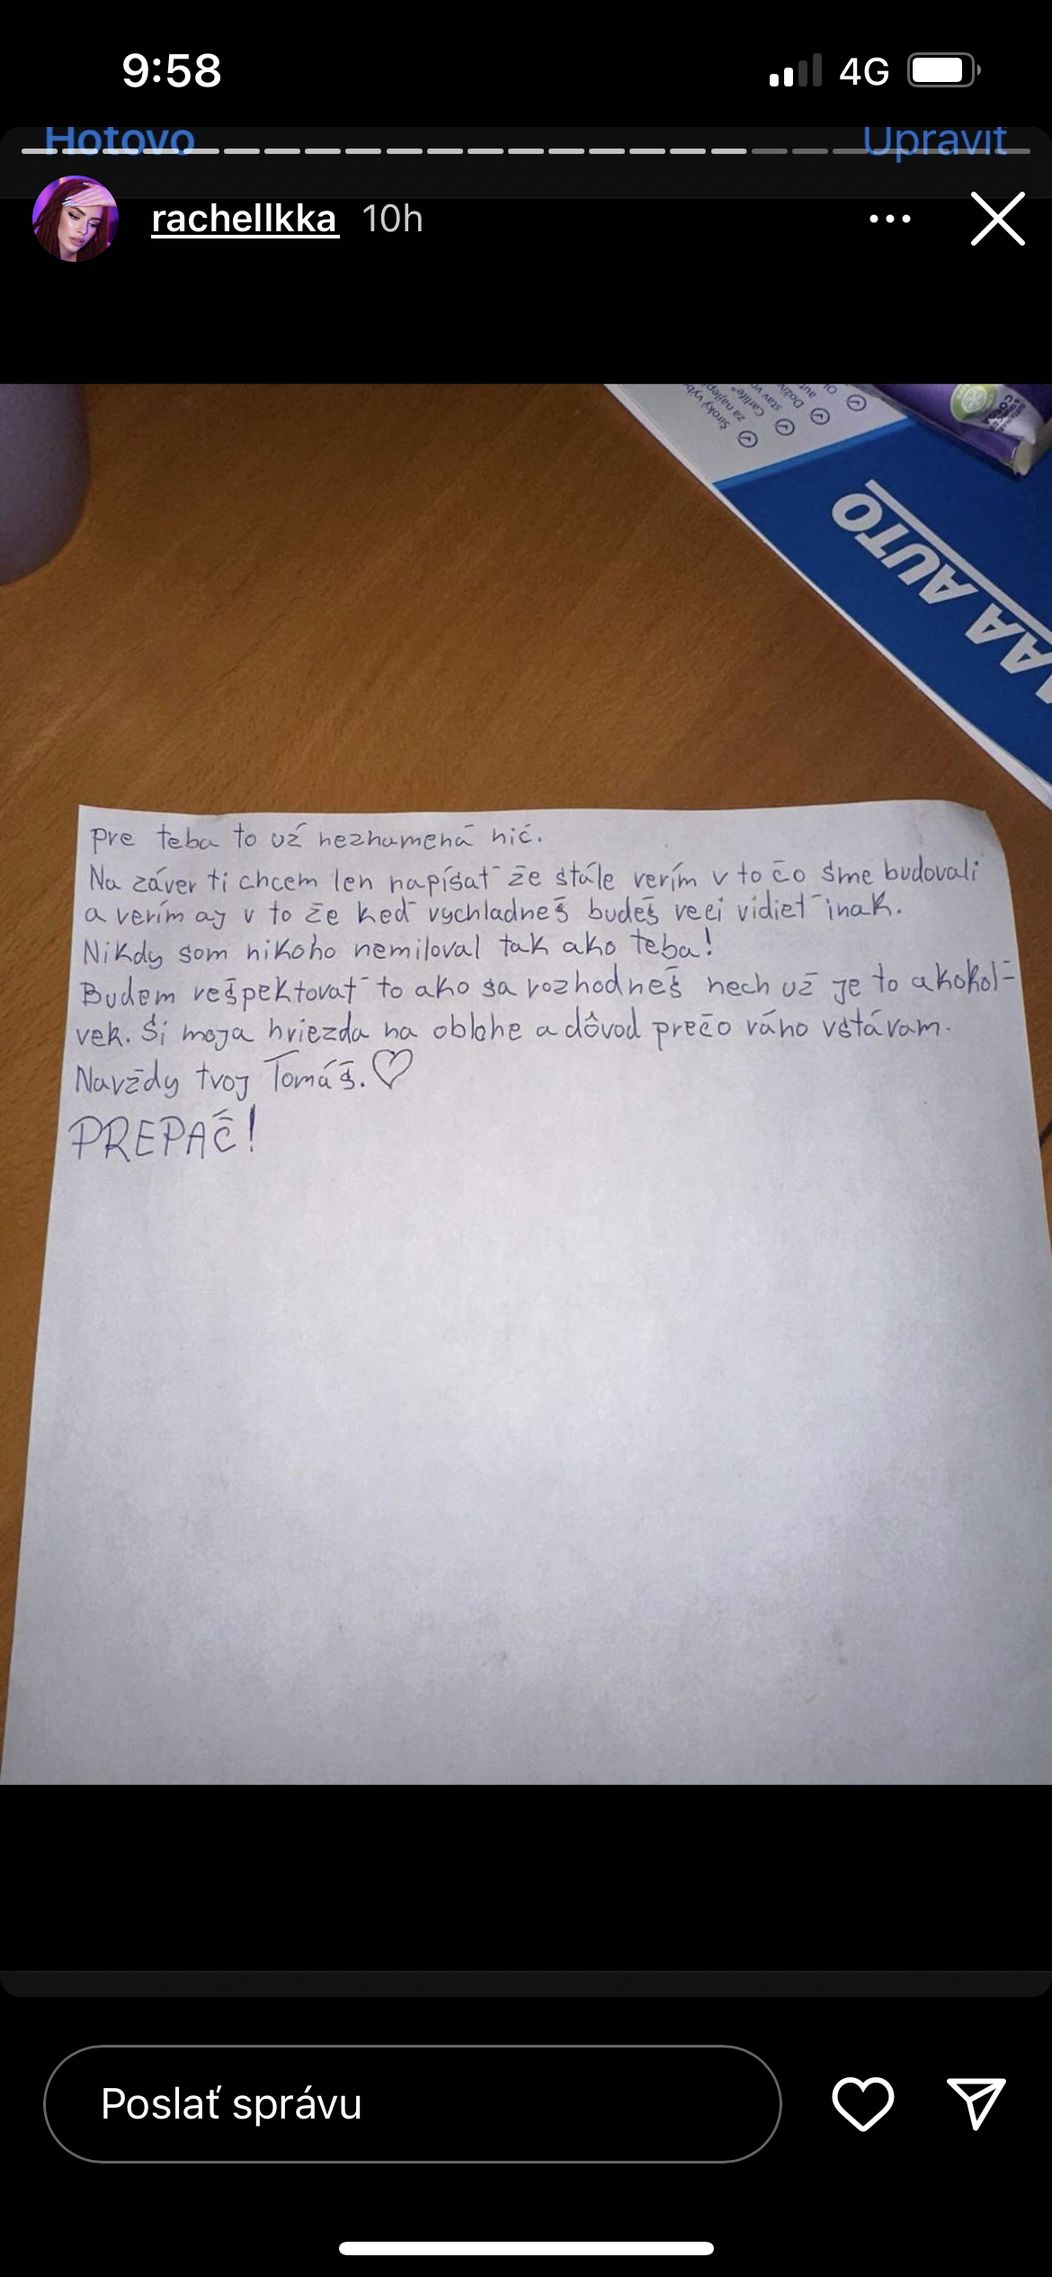 9:58
4G
Hotovo
Upraviť
rachellkka 10h
Široký výb
za najlep
Carlife®
stav vo
Doživ
aut
AAA AUTO
pre teba to už neznamená nič.
Na záver ti chcem len napísať že stále verím v to čo sme budovali
a verím aj v to že keď vychladneš budeš veci vidieť inak.
Nikdy som nikoho nemiloval tak ako teba!
Budem rešpektovať to ako sa rozhodneš nech už je to akokoľ-
vek. Si moja hviezda na oblohe a dôvod prečo ráno vstávam.
Navždy tvoj Tomáš.♡
PREPÁČ!
Poslať správu